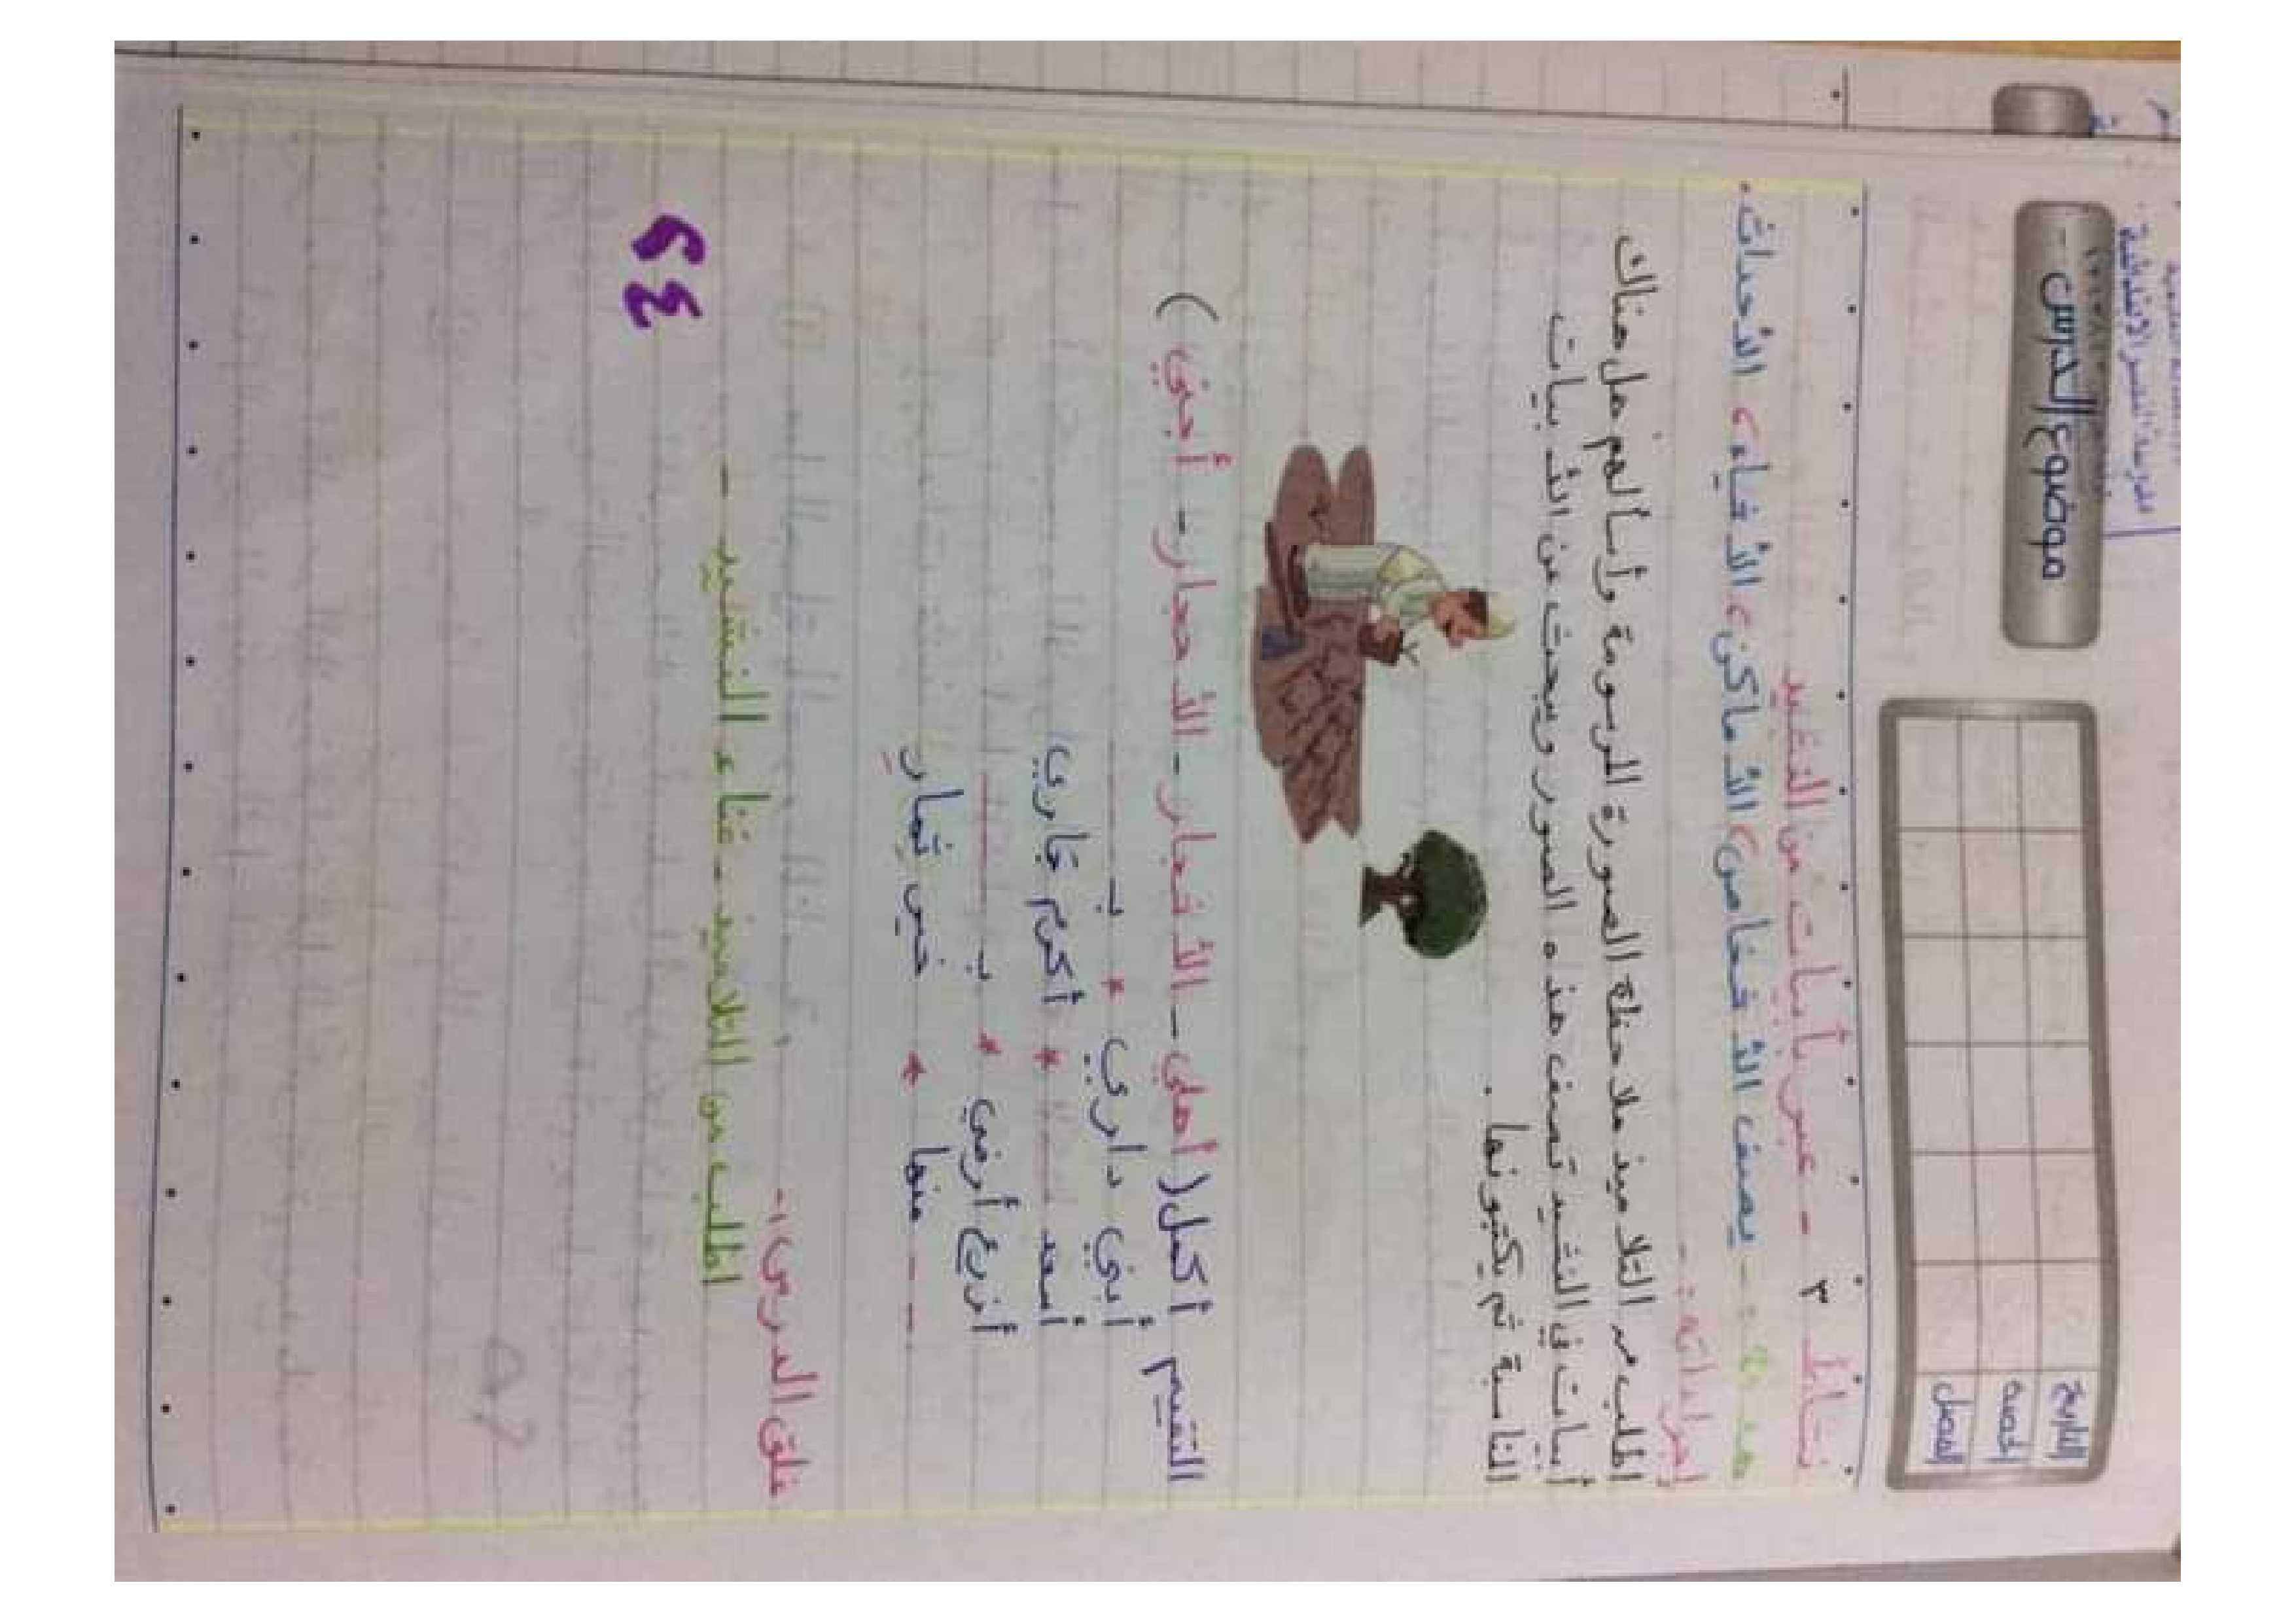 موضوع الدرس -
التاريخ
الحصه
الفصل
نشاط ٣ - عبر بأبيات من النشيد
هدفه :- يصف الأشخاص، الأماكن، الأشياء، الأحداث.
إجراءاته :-
اطلب من التلاميذ ملاحظة الصورة المرسومة وأسألهم هل هناك
أبيات في النشيد تصف هذه الصور ويبحث عن الأبيات
المناسبة ثم يكتبونها .
التقييم أكمل ( أهلي - الأشعار - الأحجار - أجني )
أبني داري * بـ
أسعد * أكرم جاري
أزرع أرضي * بـ
منها * خير ثمار
غلق الدرس :-
اطلب من التلاميذ - غناء النشيد -
٢٤